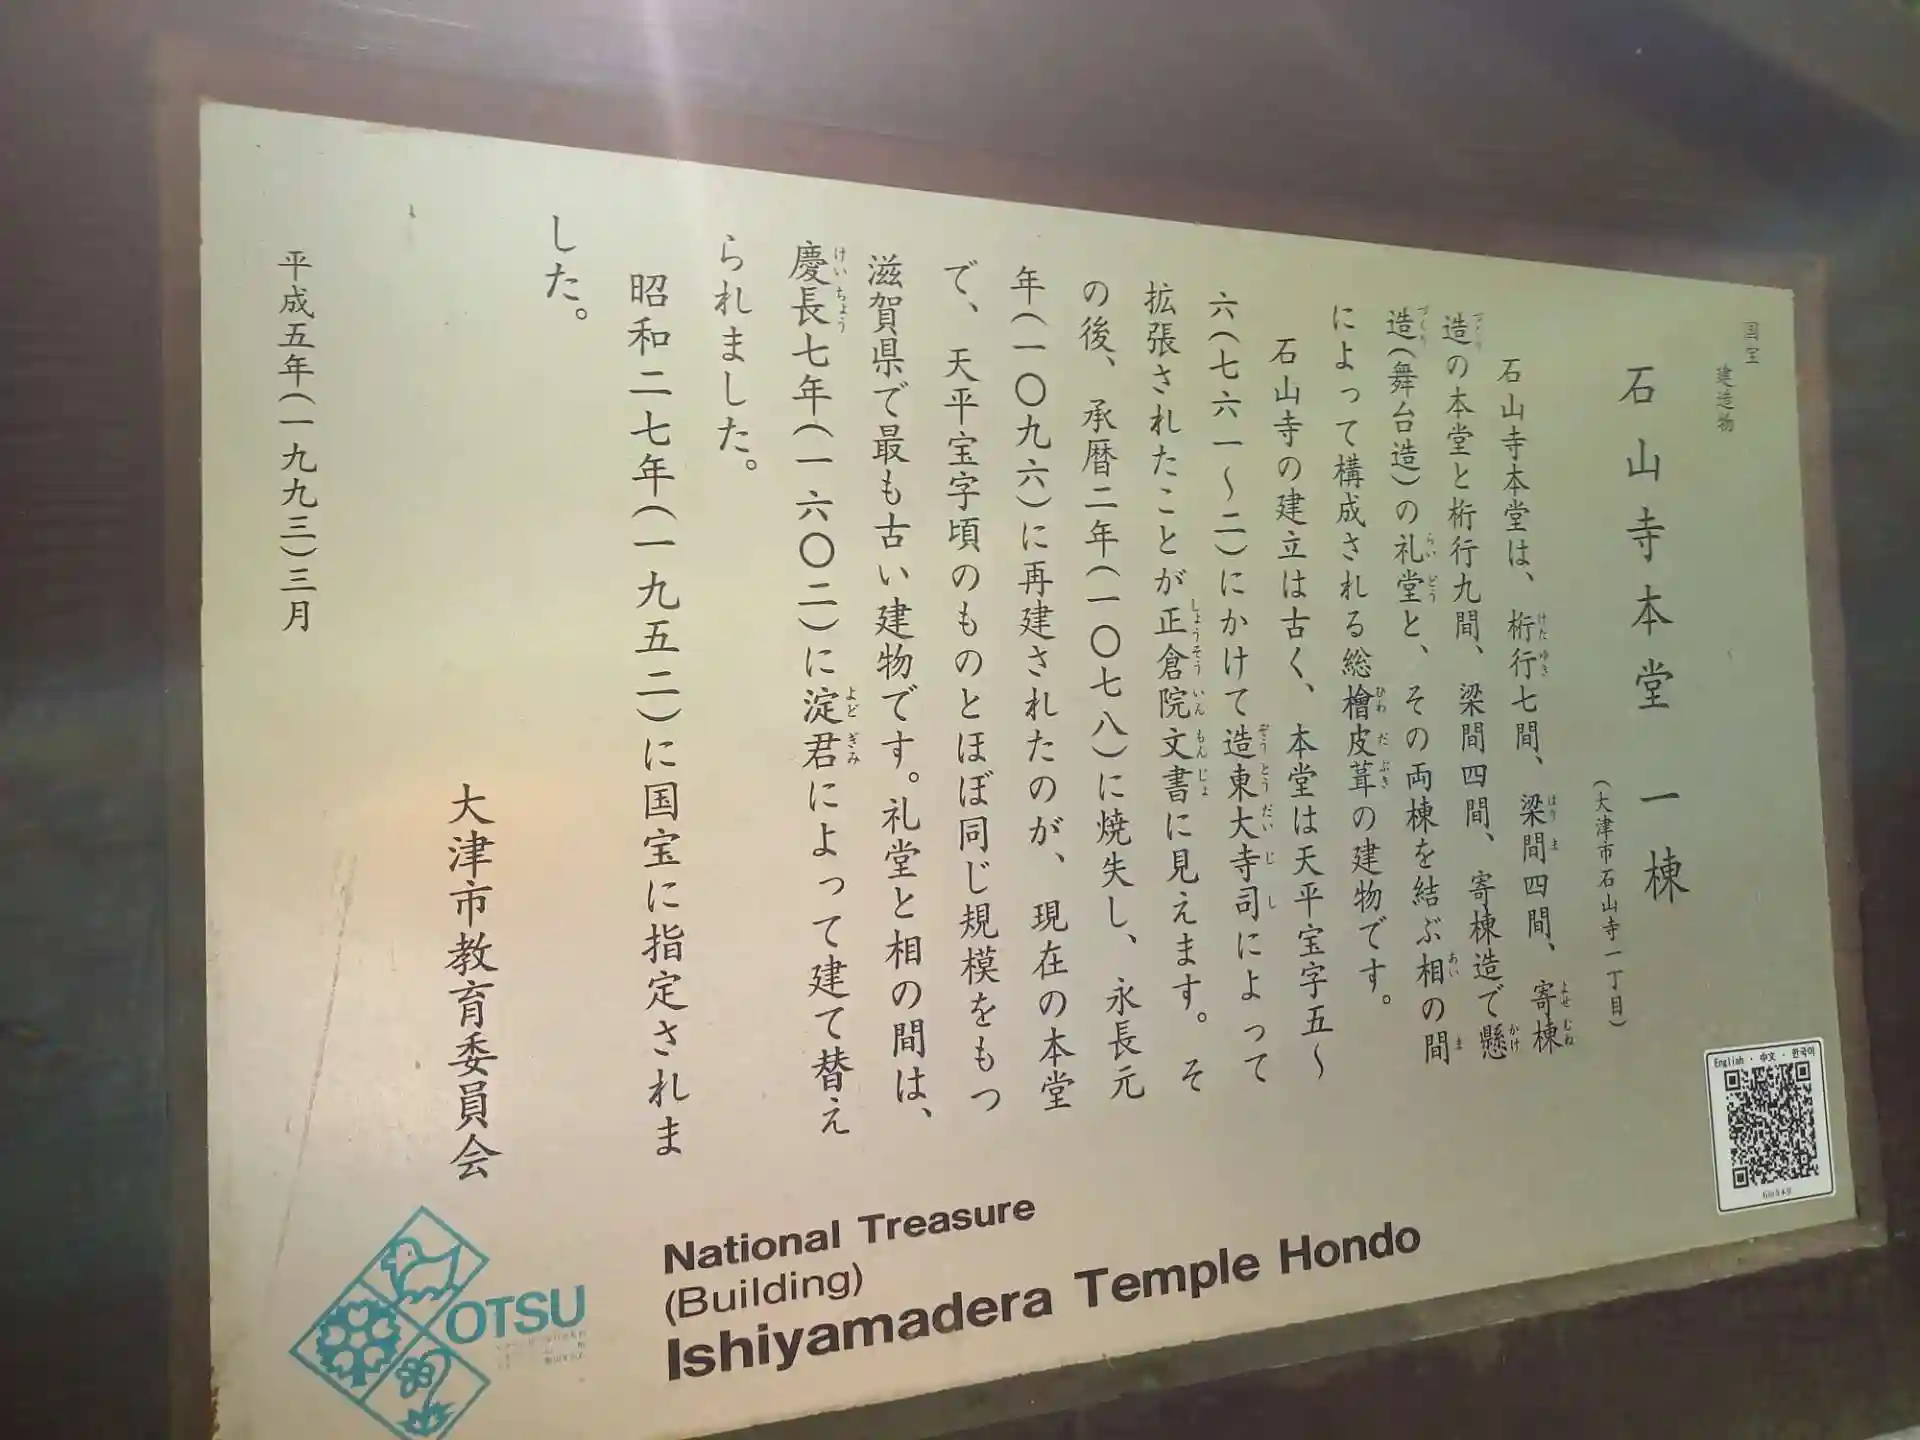 国宝 建造物
石山寺本堂 一棟
(大津市石山寺一丁目)
石山寺本堂は、桁行七間、梁間四間、寄棟
造の本堂と桁行九間、梁間四間、寄棟造で懸
造(舞台造)の礼堂と、その両棟を結ぶ相の間
によって構成される総檜皮葺の建物です。
石山寺の建立は古く、本堂は天平宝字五〜
六(七六一〜二)にかけて造東大寺司によって
拡張されたことが正倉院文書に見えます。そ
の後、承暦二年(一〇七八)に焼失し、永長元
年(一〇九六)に再建されたのが、現在の本堂
で、天平宝字頃のものとほぼ同じ規模をもつ
滋賀県で最も古い建物です。礼堂と相の間は、
慶長七年(一六〇二)に淀君によって建て替え
られました。
昭和二七年(一九五二)に国宝に指定されま
した。
大津市教育委員会
平成五年(一九九三)三月
English・中文・한국어
OTSU
National Treasure
(Building)
Ishiyamadera Temple Hondo